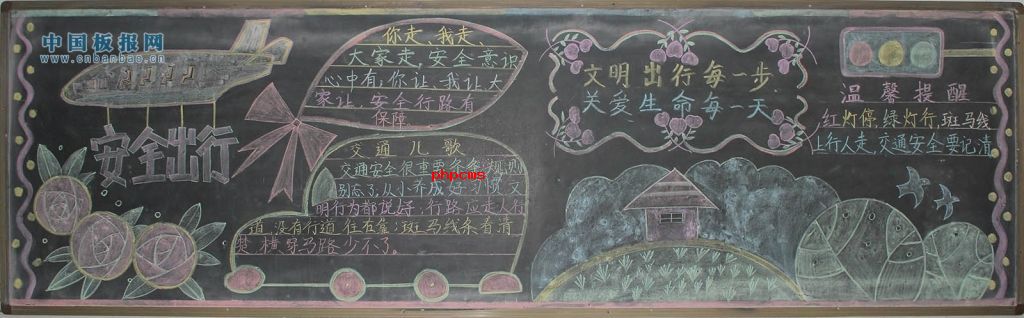 中国板报网
www.cnbanbao.cn
安全出行
你走、我走、
大家走,安全意识
心中有;你让、我让大
家让,安全行路有
保障
交通儿歌
交通安全很重要,条条规则
别忘了,从小养成好习惯,文
明行为都说好;行路应走人行
道,没有行道往右靠;斑马线条看清
楚,横穿马路少不了。
phpcms
文明出行每一步
关爱生命每一天
温馨提醒
红灯停,绿灯行,斑马线
上行人走,交通安全要记清